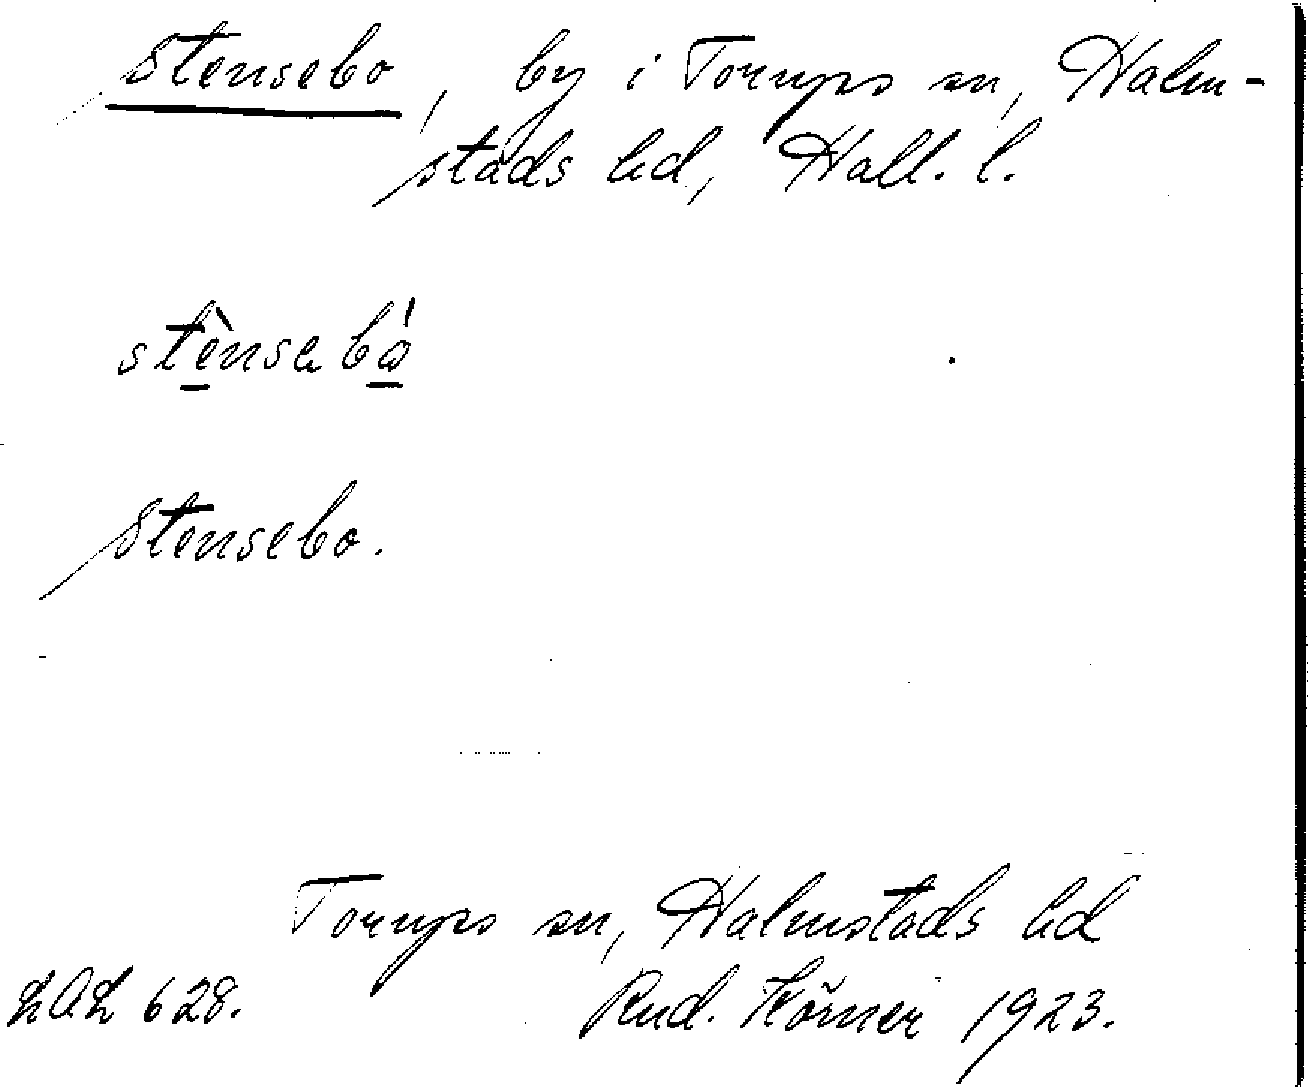 Stensebo, by i Torups sn, Halm-
stads hd, Hall. l.
stè̱nsabó̱
Stensebo.
Torups sn, Halmstads hd
LAL 628. Rud. Körner 1923.